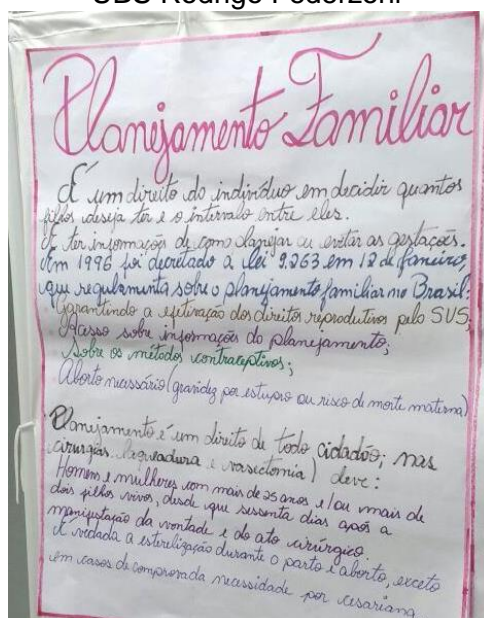 UBS Rodrigo Pederzoni
Planejamento Familiar
É um direito do indivíduo em decidir quantos
filhos deseja ter e o intervalo entre eles.
É ter informação de como planejar ou evitar as gestações.
Em 1996 foi decretado a lei 9.263 em 12 de janeiro,
que regulamenta sobre o planejamento familiar no Brasil:
Garantindo a efetivação dos direitos reprodutivos pelo SUS;
Acesso sobre informações do planejamento;
Sobre os métodos contraceptivos;
Aborto necessário (gravidez por estupro ou risco de morte materna)
Planejamento é um direito de todo cidadão; mas
cirurgias (laqueadura e vasectomia) deve:
Homens e mulheres com mais de 25 anos e/ou mais de
dois filhos vivos, desde que sessenta dias após a
manifestação da vontade e do ato cirúrgico.
É vedada a esterelização durante o parto e aborto, exceto
em casos de comprovada necessidade por cesariana